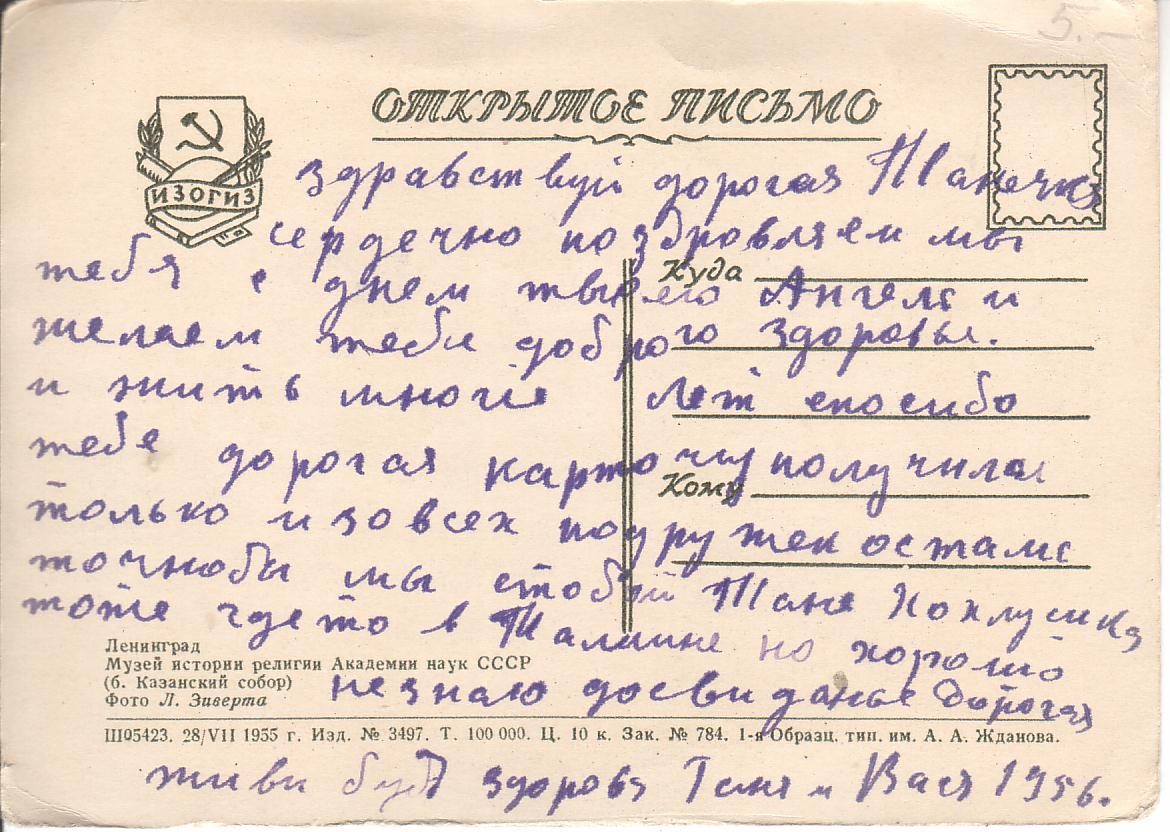 5.—
ОТКРЫТОЕ ПИСЬМО
ИЗОГИЗ
здравствуй дорогая Танечка
сердечно поздровляем мы
тебя с днем твоего Ангела и
Куда
желаем тебе доброго здоровья.
и жить многие лет спосибо
тебе дорогая карточку получила
Кому
только изовсех подружек остались
точнобы мы стобой Таня Хохлушка
тоже гдето в Таллине но хорошо
Ленинград
Музей истории религии Академии наук СССР
(б. Казанский собор)
незнаю досвиданье Дорогая
Фото Л. Зиверта
Ш05423. 28/VII 1955 г. Изд. № 3497. Т. 100 000. Ц. 10 к. Зак. № 784. 1-я Образц. тип. им. А. А. Жданова.
живи будь здорова Геня и Вася 1956.